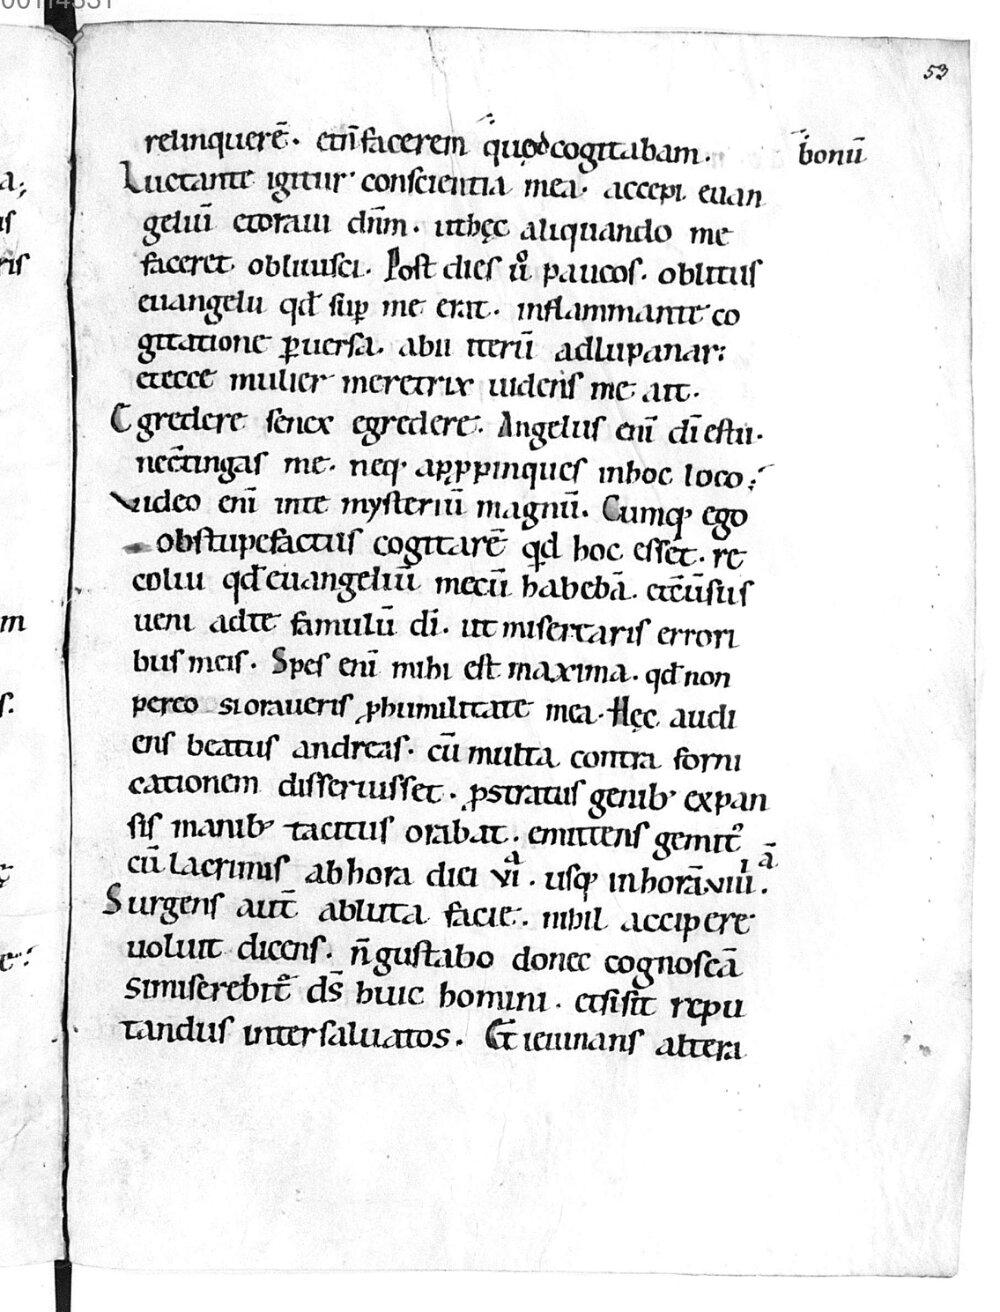 53
relinquerē. et n̄ facerem quod cogitabam. bonū
Luctante igitur conscientia mea. accepi euan
geliū et oraui dn̄m. ut hęc aliquando me
faceret obliuisci. Post dies ů paucos. oblitus
euangelii qđ sup̱ me erat. inflammante co
gitatione p̱uersa. abii iterū ad lupanar;
et ecce mulier meretrix uidens me ait.
Egredere senex egredere. Angelus enī dī es tu.
nec tingas me. neq; appropinques in hoc loco;
Video enī in te mysteriū magnū. Cumq; ego
obstupefactus cogitarē qđ hoc esset. re
colui qđ euangeliū mecū habebā. et cūsus
ueni ad te famulū dī. ut miserearis errori
bus meis. Spes enī mihi est maxima. qđ non
pereo si oraueris ꝓ humilitate mea. Hęc audi
ens beatus andreas. cū multa contra forni
cationem disseruisset. ꝓstratus genib; expan
sis manib; tacitus orabat. emittens gemit᷒
cū lacrimis ab hora diei vi.ᵃ usq; in horā viiii.ᵃ
Surgens aut̄ abluta facie. nihil accipere
uoluit dicens. n̄ gustabo donec cognoscā
si miserebit̄ ds̄ huic homini. et si sit repu
tandus inter saluatos. Et ieiunans altera